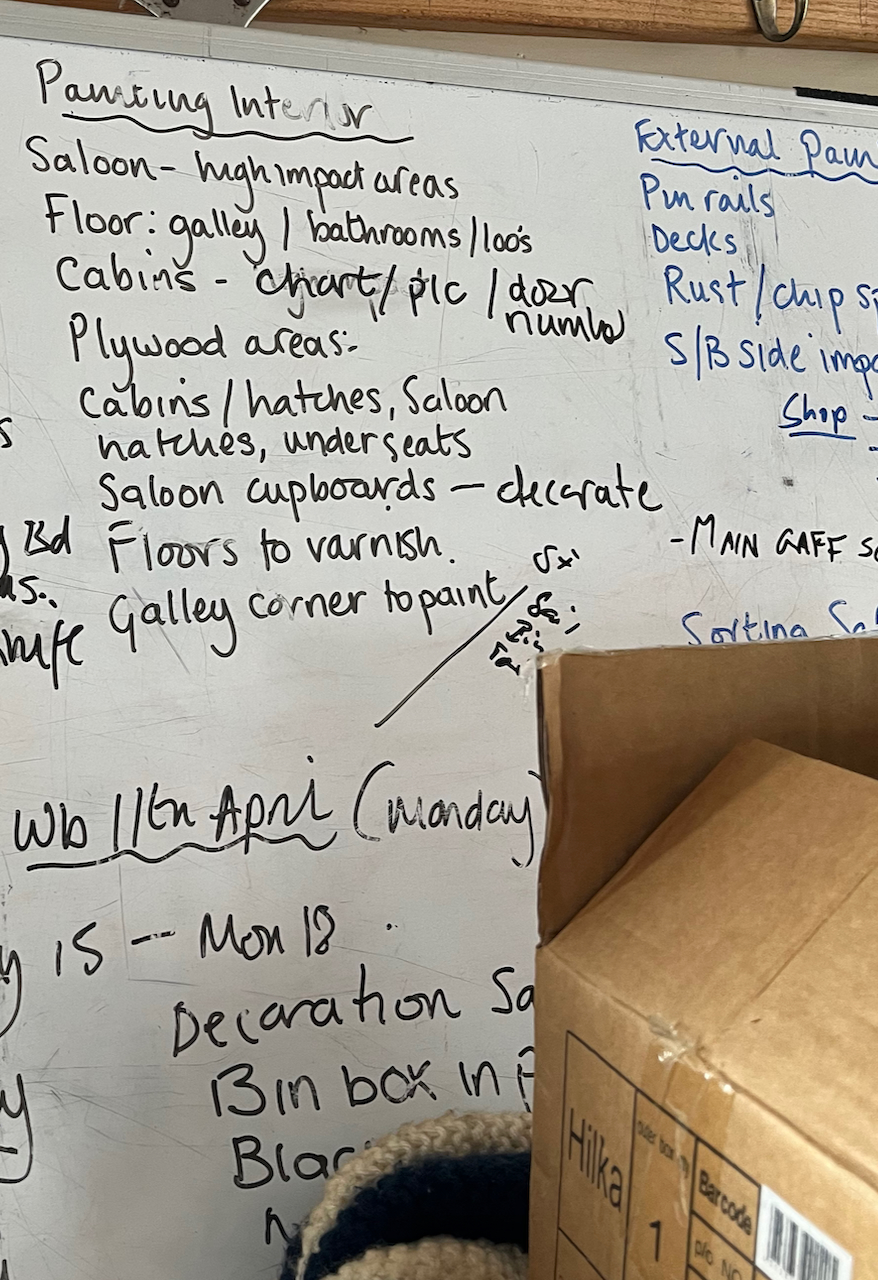 Painting Interior
Saloon - high impact areas
Floor: galley / bathrooms / loo's
Cabins - chart / plc / door
number
Plywood areas:-
Cabins / hatches, Saloon
hatches, under seats
Saloon cupboards - decorate
Floors to varnish.
Galley corner to paint
Wb 11th April (Monday)
15 - Mon 18
Decoration Sa
Bin box in
Blac
External Pain
Pin rails
Decks
Rust / chip
S/B Side imp
Shop -
- MAIN GAFF
Sorting
Hilka
outer box
1
Barcode
p/o No